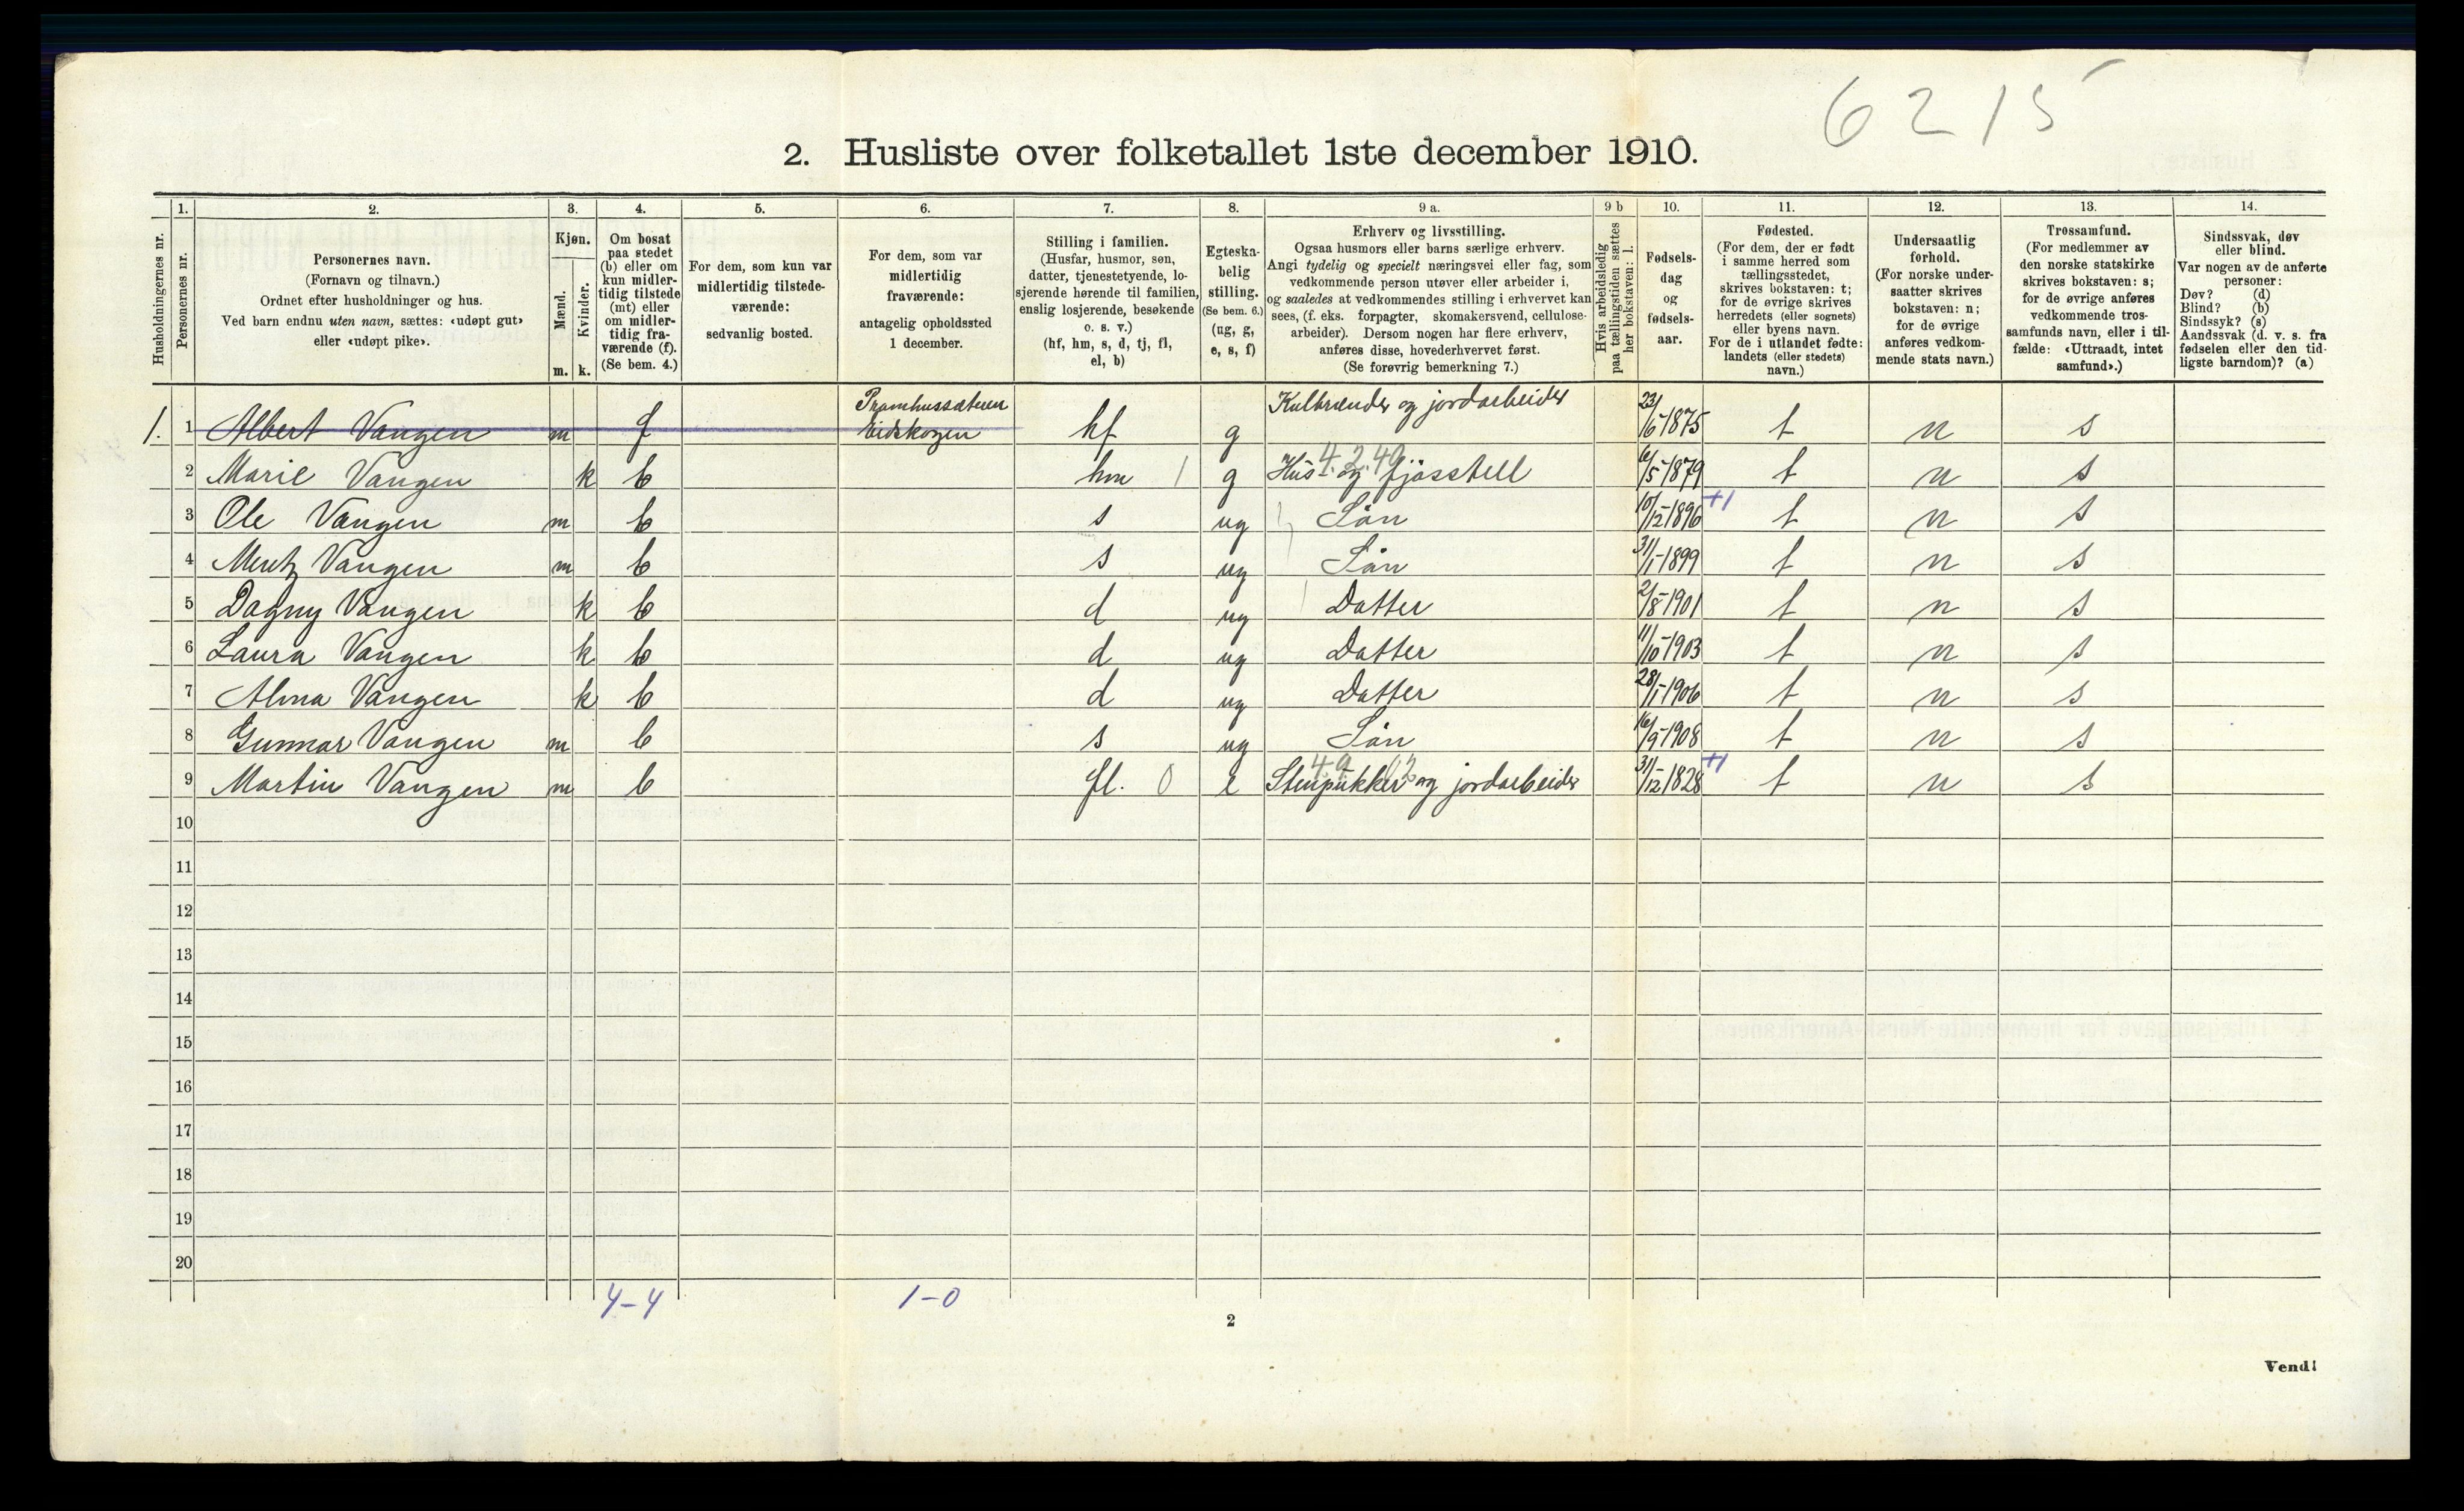 6215
2. Husliste over folketallet 1ste december 1910.
Husholdningernes nr.
1. Personernes nr.
2. Personernes navn.
(Fornavn og tilnavn.)
Ordnet efter husholdninger og hus.
Ved barn endnu uten navn, sættes: «udøpt gut»
eller «udøpt pike».
3. Kjøn.
Mænd. m.
Kvinder. k.
4. Om bosat
paa stedet
(b) eller om
kun midler-
tidig tilstede
(mt) eller
om midler-
tidig fra-
værende (f).
(Se bem. 4.)
5. For dem, som kun var
midlertidig tilstede-
værende:
sedvanlig bosted.
6. For dem, som var
midlertidig
fraværende:
antagelig opholdssted
1 december.
7. Stilling i familien.
(Husfar, husmor, søn,
datter, tjenestetyende, lo-
sjerende hørende til familien,
enslig losjerende, besøkende
o. s. v.)
(hf, hm, s, d, tj, fl,
el, b)
8. Egteska-
belig
stilling.
(Se bem. 6.)
(ug, g,
e, s, f)
9 a. Erhverv og livsstilling.
Ogsaa husmors eller barns særlige erhverv.
Angi tydelig og specielt næringsvei eller fag, som
vedkommende person utøver eller arbeider i,
og saaledes at vedkommendes stilling i erhvervet kan
sees, (f. eks. forpagter, skomakersvend, cellulose-
arbeider). Dersom nogen har flere erhverv,
anføres disse, hovederhvervet først.
(Se forøvrig bemerkning 7.)
9 b Hvis arbeidsledig
paa tællingstiden sættes
her bokstaven: l.
10. Fødsels-
dag
og
fødsels-
aar.
11. Fødested.
(For dem, der er født
i samme herred som
tællingsstedet,
skrives bokstaven: t;
for de øvrige skrives
herredets (eller sognets)
eller byens navn.
For de i utlandet fødte:
landets (eller stedets)
navn.)
12. Undersaatlig
forhold.
(For norske under-
saatter skrives
bokstaven: n;
for de øvrige
anføres vedkom-
mende stats navn.)
13. Trossamfund.
(For medlemmer av
den norske statskirke
skrives bokstaven: s;
for de øvrige anføres
vedkommende tros-
samfunds navn, eller i til-
fælde: «Uttraadt, intet
samfund».)
14. Sindssvak, døv
eller blind.
Var nogen av de anførte
personer:
Døv? (d)
Blind? (b)
Sindssyk? (s)
Aandssvak (d. v. s. fra
fødselen eller den tid-
ligste barndom)? (a)
1. 1 Albert Vangen m f Pramhussæteren Eidskogen hf g Kulbrænder og jordarbeider 23/6-1875 t n s
4.2.49
2 Marie Vangen k b hm 1 g Hus- og fjösstell 6/5-1879 t n s
3 Ole Vangen m b s ug Sön 10/12-1896 +1 t n s
4 Mentz Vangen m b s ug Sön 31/1-1899 t n s
5 Dagny Vangen k b d ug Datter 2/8-1901 t n s
6 Laura Vangen k b d ug Datter 11/10-1903 t n s
7 Alma Vangen k b d ug Datter 28/1-1906 t n s
8 Gunnar Vangen m b s ug Sön 16/9-1908 t n s
9 Martin Vangen m b fl. 0 e Stenpukker og jordarbeider 31/12-1828 +1 t n s
10
11
12
13
14
15
16
17
18
19
20
4-4 1-0
2
Vend!